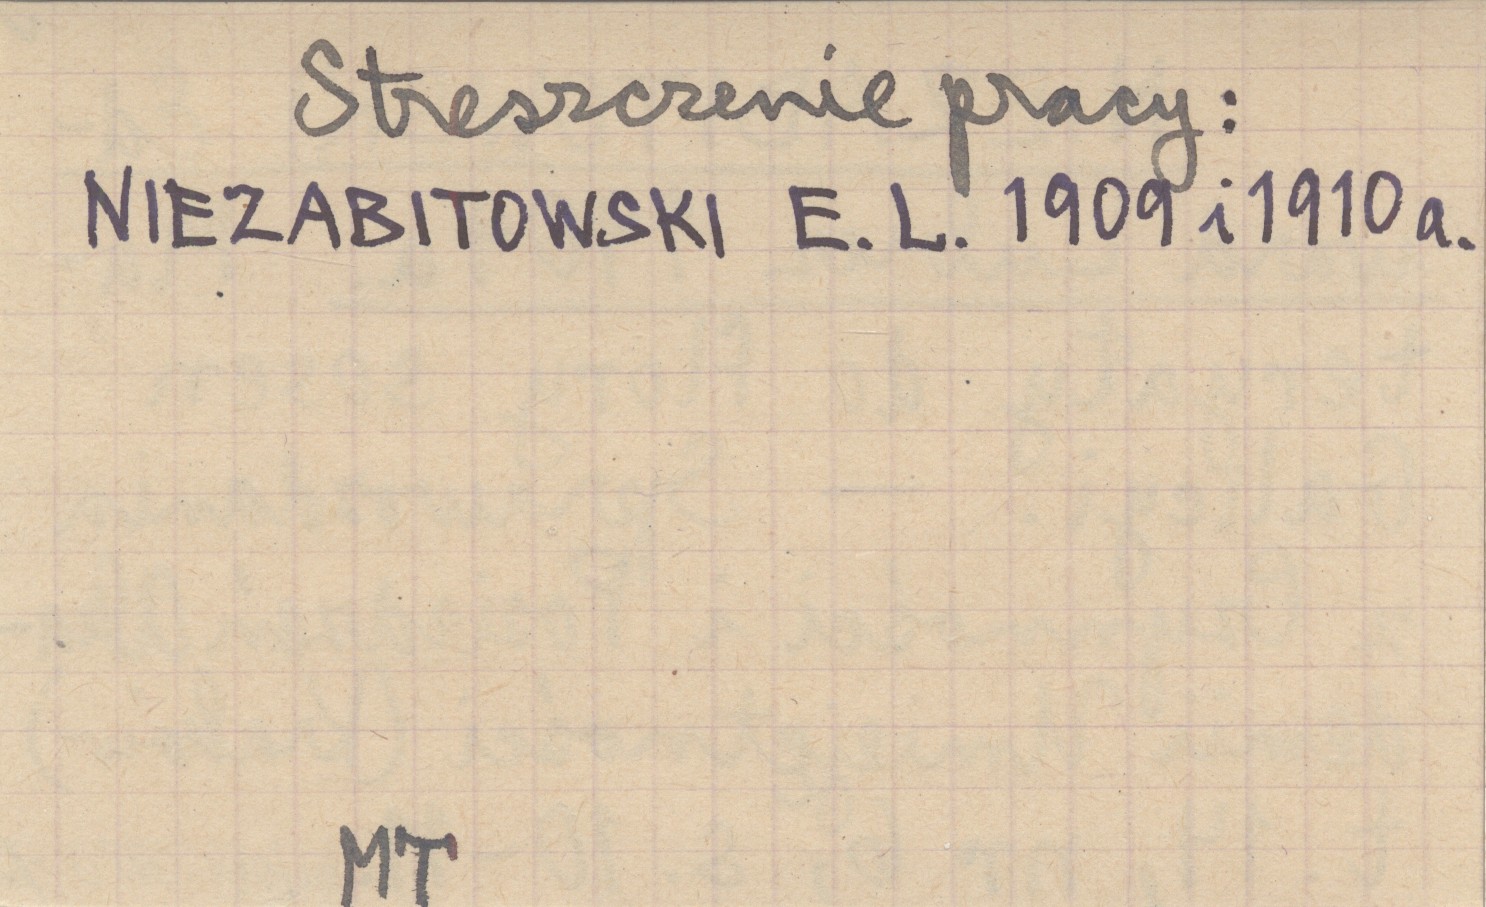 Streszczenie pracy:
NIEZABITOWSKI E. L. 1909 i 1910 a.
MT